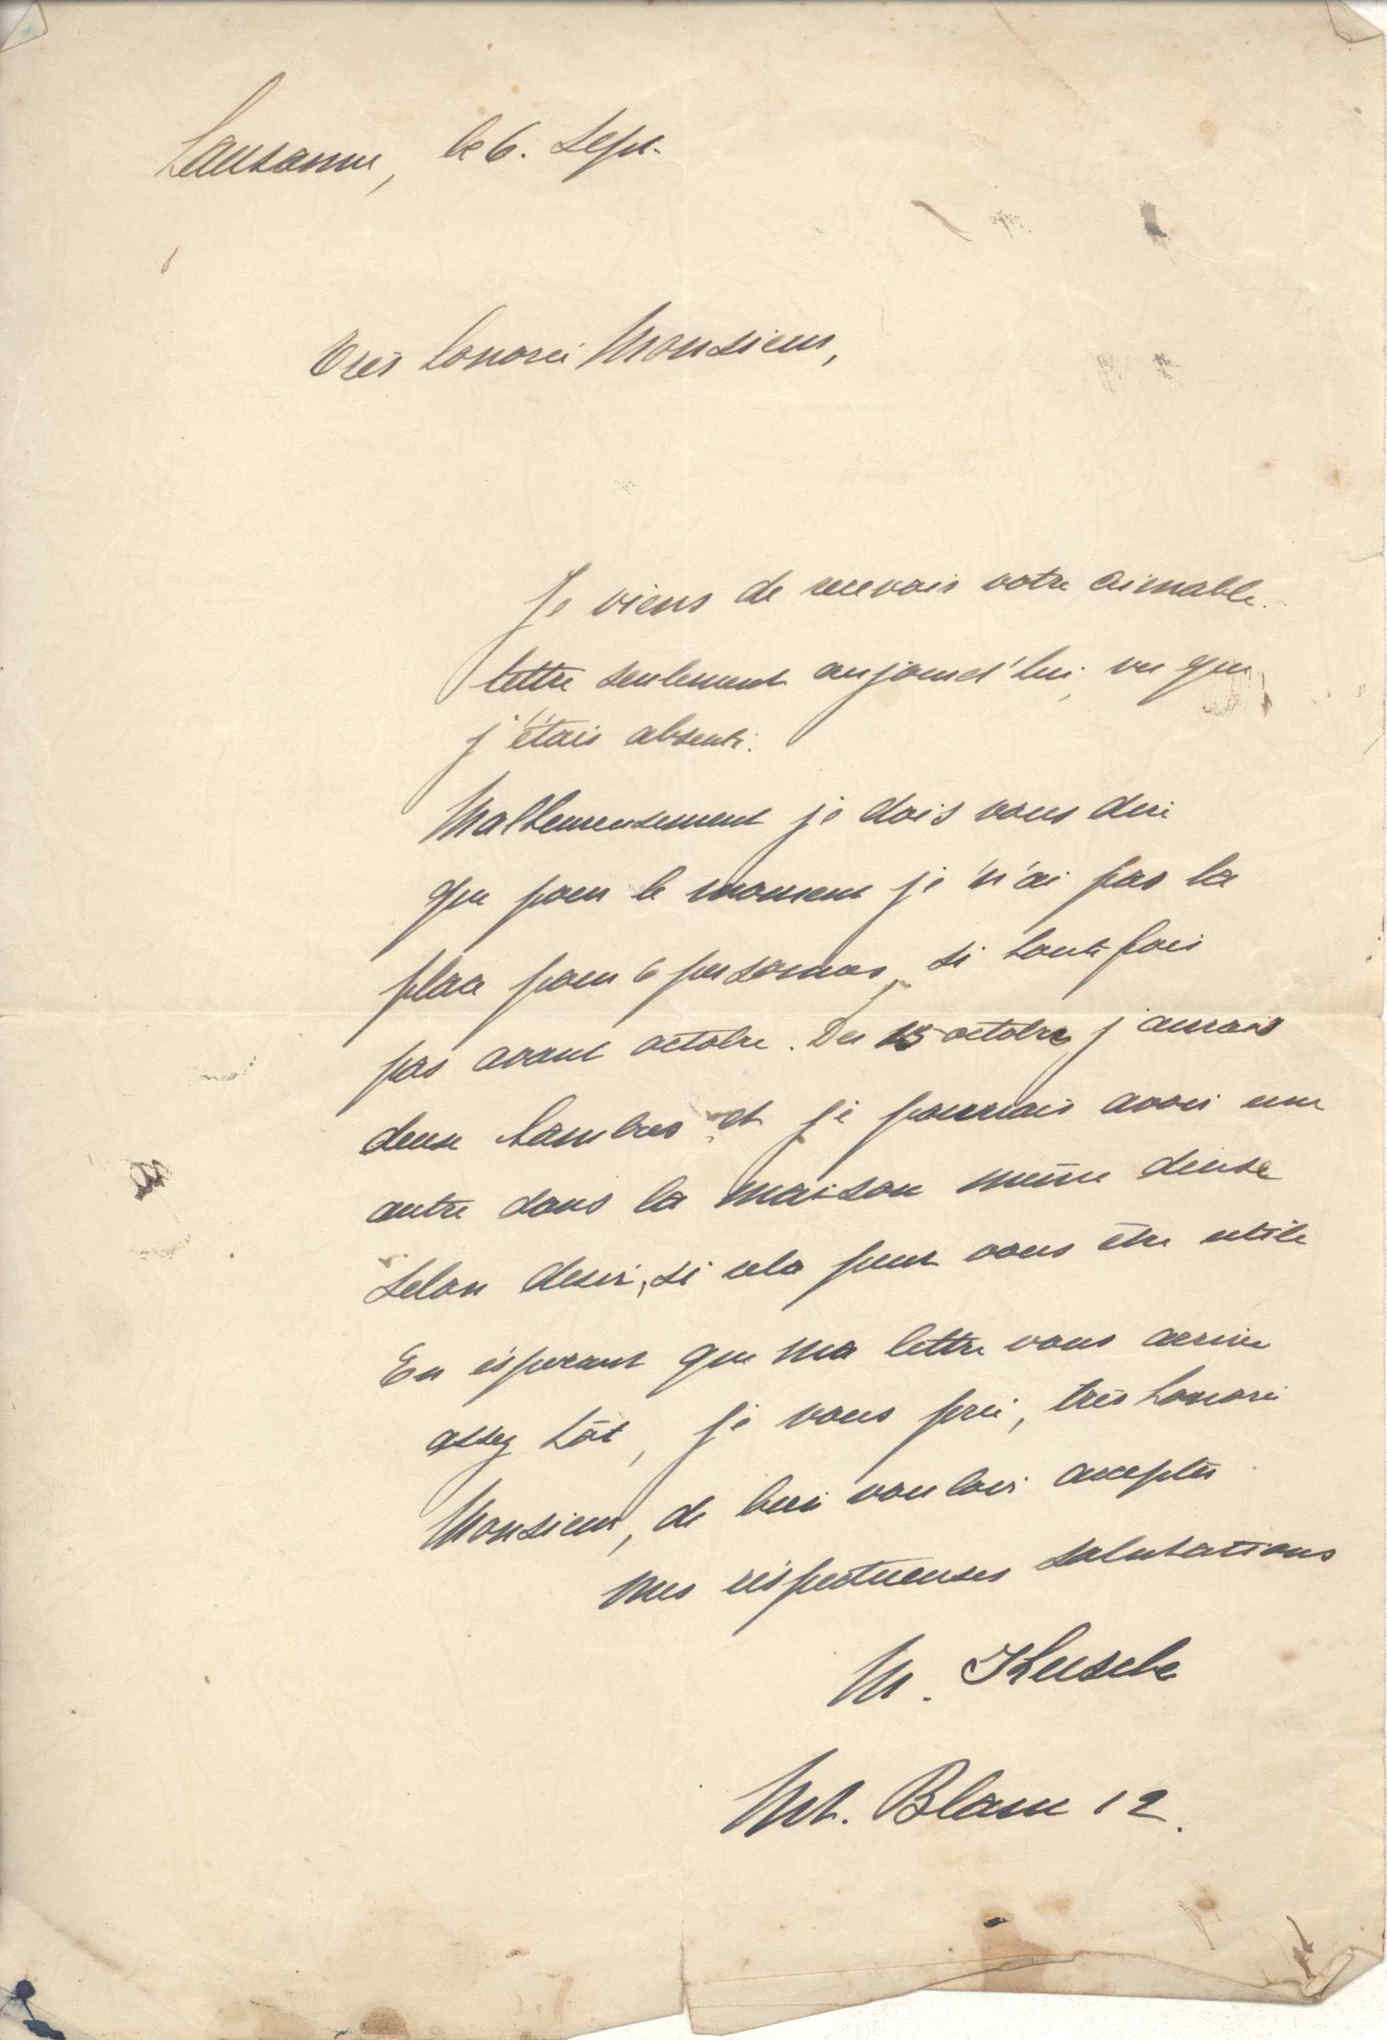 Lausanne, le 6. Sept.
Très honoré Monsieur,
Je viens de recevoir votre aimable
lettre seulement aujourd'hui, vu que
j'étais absente.
Malheureusement je dois vous dire
que pour le moment je n'ai pas la
place pour 6 personnes, si toute fois
pas avant octobre. Des 15 octobre j'aurais
deux chambres et je pourrais avoir une
autre dans la maison même deuse
selon desir, si cela peut vous être utile
En éspérant que ma lettre vous arrive
assez tôt, je vous prie, très honoré
Monsieur, de bien vouloir accepter
mes réspectueuses salutations
M.
Mt. Blanc 12.